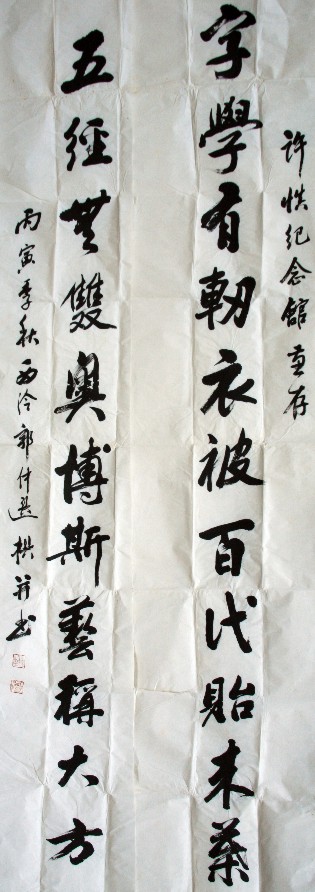 許慎紀念館惠存
字學有軔衣被百代貽末葉
五經無雙奧博斯藝稱大方
丙寅季秋西泠郭仲選撰并書